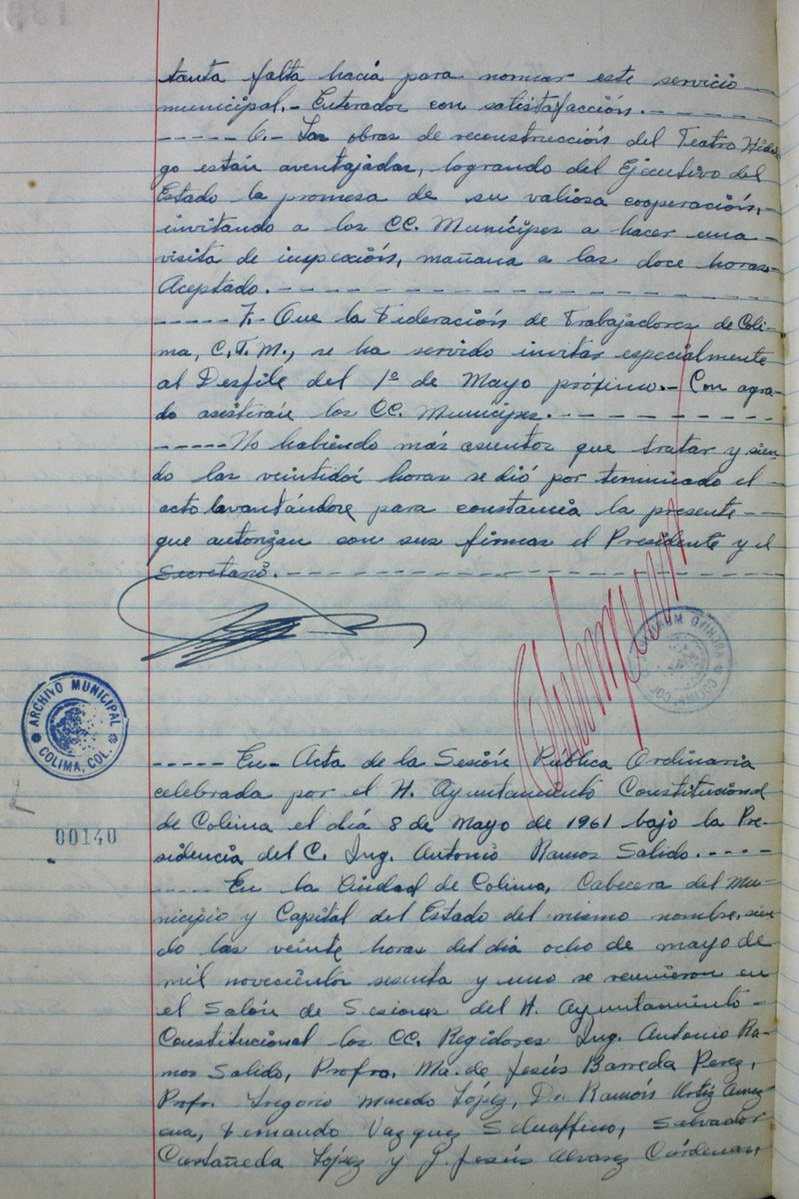 tanta falta hacía para normar este servicio
municipal.- Enterados con satisfacción. - - - - - -
- - - - - 6.- Las obras de reconstrucción del Teatro Hidal
go están aventajadas, logrando del Ejecutivo del
Estado la promesa de su valiosa cooperación,-
invitando a los CC. Munícipes a hacer una -
visita de inspección, mañana a las doce horas.-
Aceptado. - - - - - - - - - - - - - - - -
- - - - - 7.- Que la Federación de Trabajadores de Coli-
ma, C.T.M., se ha servido invitar especialmente
al Desfile del 1º de Mayo próximo.- Con agra-
do asistirán los CC. Munícipes. - - - - - - - -
- - - - - No habiendo más asuntos que tratar y sien
do las veintidós horas se dió por terminado el -
acto levantándose para constancia la presente - -
que autorizan con sus firmas el Presidente y el
Secretario. - - - - - - - - - - - - - - - -
ARCHIVO MUNICIPAL
COLIMA, COL.
- - - - - En- Acta de la Sesión Pública Ordinaria
celebrada por el H. Ayuntamiento Constitucional
00140
de Colima el día 8 de Mayo de 1961 bajo la Pre-
sidencia del C. Ing. Antonio Ramos Salido. - - - - -
- - - - - En la Ciudad de Colima, Cabecera del Mu-
nicipio y Capital del Estado del mismo nombre, sien
do las veinte horas del día ocho de mayo de
mil novecientos sesenta y uno se reunieron en
el Salón de Sesiones del H. Ayuntamiento -
Constitucional los CC. Regidores Ing. Antonio Ra-
mos Salido, Profra. Ma. de Jesús Barreda Perez,
Profr. Gregorio Macedo López, Dr. Ramón Ortiz
Fernando Vazquez Schiaffino, Salvador
Castañeda López y J. Jesús Alvarez Cárdenas,